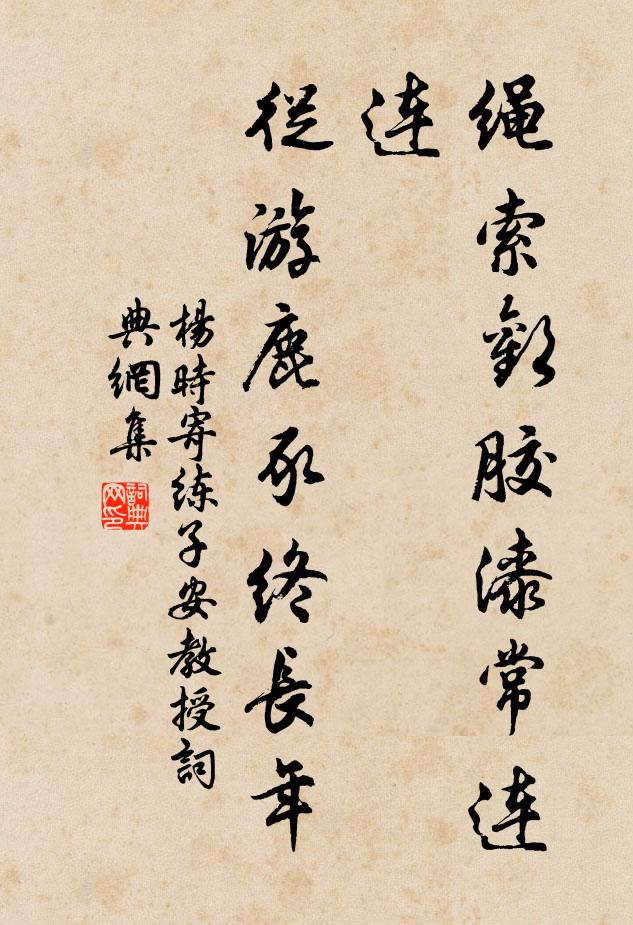 绳索胶漆常連
連
從游鹿豕终長年
楊時寄练子安教授詞
典網集
詞典
网印